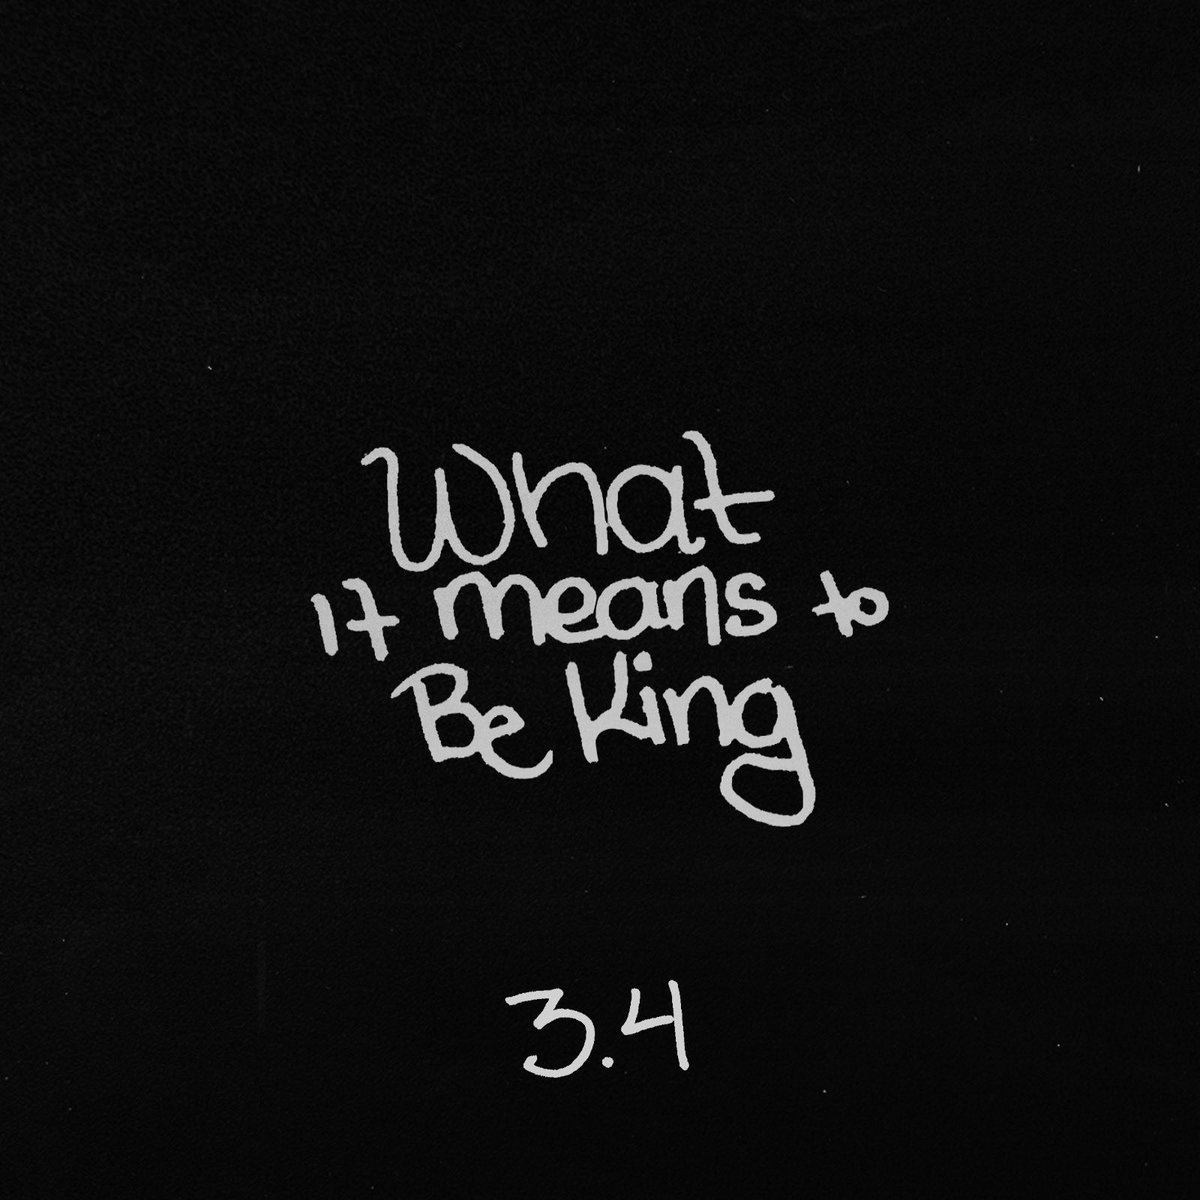 What
it means to
Be King
3.4